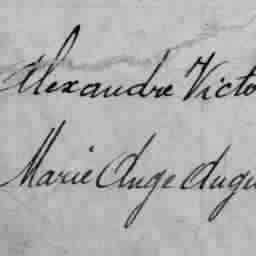 Alexandre Victo
Marie Ange Augu